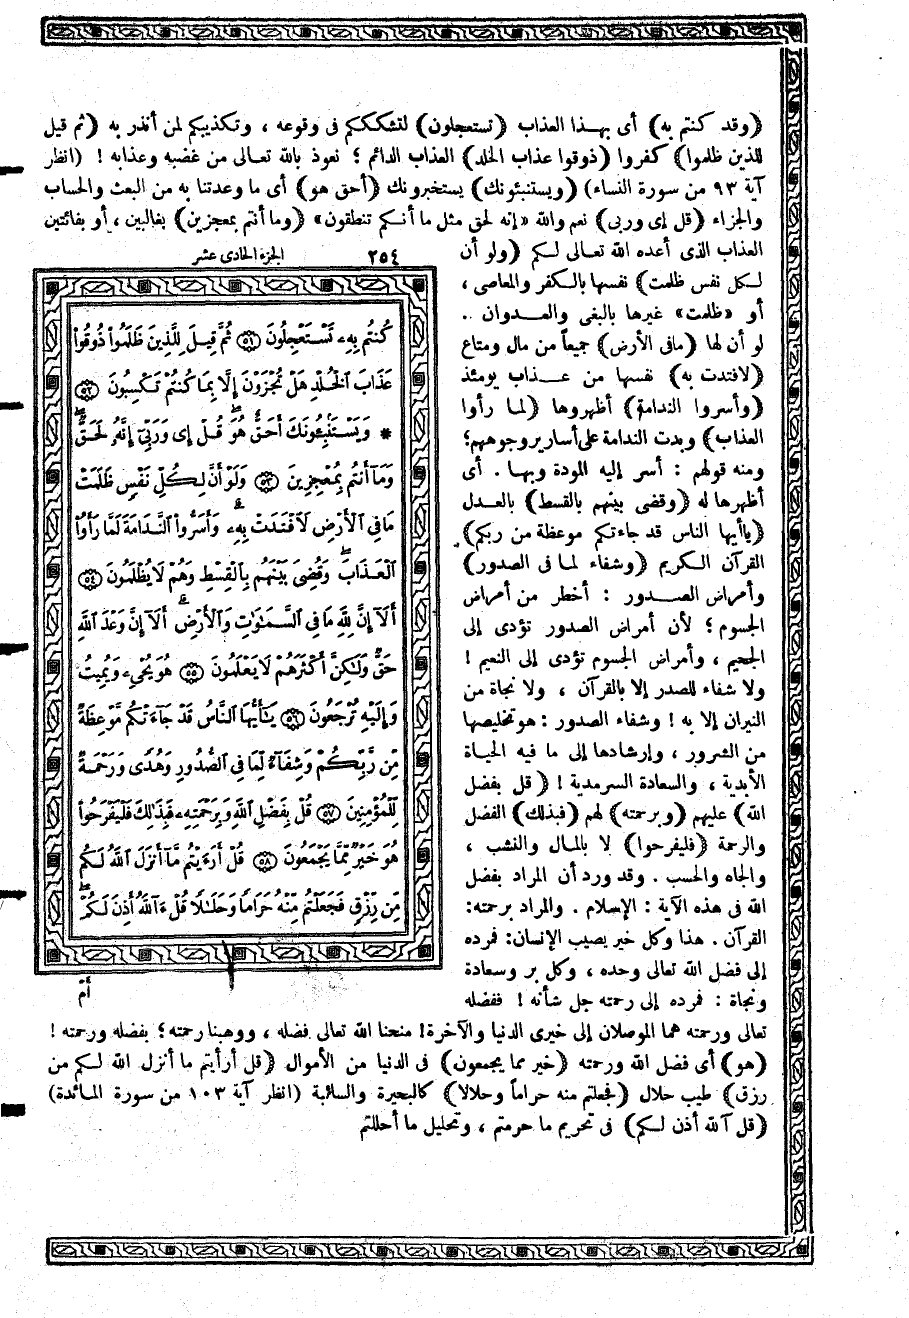 (وقد كنتم به) أى بهذا العذاب (تستعجلون) لتشككم فى وقوعه ، وتكذيبكم لمن أنذر به (ثم قيل
للذين ظلموا) كفروا (ذوقوا عذاب الخلد) العذاب الدائم ؛ نعوذ بالله تعالى من غضبه وعذابه ! (انظر
آية ٩٣ من سورة النساء) (ويستنبئونك) يستخبرونك (أحق هو) أى ما وعدتنا به من البعث والحساب
والجزاء (قل إى وربى) نعم والله «إنه لحق مثل ما أنكم تنطقون» (وما أنتم بمعجزين) بغالبين ، أو بفائتين
العذاب الذى أعده الله تعالى لكم (ولو أن
لكل نفس ظلمت) نفسها بالكفر والمعاصى ،
أو «ظلمت» غيرها بالبغى والعدوان ..
لو أن لها (مافى الأرض) جميعاً من مال ومتاع
(لافتدت به) نفسها من عذاب يومئذ
(وأسروا الندامة) أظهروها (لما رأوا
العذاب) وبدت الندامة على أسارير وجوههم ؛
ومنه قولهم : أسر إليه المودة وبها . أى
أظهرها له (وقضى بينهم بالقسط) بالعدل
(ياأيها الناس قد جاءتكم موعظة من ربكم)
القرآن الكريم (وشفاء لما فى الصدور)
وأمراض الصدور : أخطر من أمراض
الجسوم ؛ لأن أمراض الصدور تؤدى إلى
الجحيم ، وأمراض الجسوم تؤدى إلى النعيم !
ولا شفاء للصدر إلا بالقرآن ، ولا نجاة من
النيران إلا به ! وشفاء الصدور : هو تخليصها
من الشرور ، وإرشادها إلى ما فيه الحياة
الأبدية ، والسعادة السرمدية ! (قل بفضل
الله) عليهم (وبرحمته) لهم (فبذلك) الفضل
والرحمة (فليفرحوا) لا بالمال والنشب ،
والجاه والحسب . وقد ورد أن المراد بفضل
الله فى هذه الآية : الإسلام . والمراد برحمته :
القرآن . هذا وكل خير يصيب الإنسان : فمرده
إلى فضل الله تعالى وحده ، وكل بر وسعادة
ونجاة : فمرده إلى رحمته جل شأنه ! ففضله
تعالى ورحمته هما الموصلان إلى خيرى الدنيا والآخرة ! منحنا الله تعالى فضله ، ووهبنا رحمته ؛ بفضله ورحمته !
(هو) أى فضل الله ورحمته (خير مما يجمعون) فى الدنيا من الأموال (قل أرأيتم ما أنزل الله لكم من
رزق) طيب حلال (فجعلتم منه حراماً وحلالا) كالبحيرة والسائبة (انظر آية ١٠٣ من سورة المائدة)
(قل آلله أذن لكم) فى تحريم ما حرمتم ، وتحليل ما أحللتم
٢٥٤ الجزء الحادى عشر
كُنتُم بِهِۦ تَسْتَعْجِلُونَ ٥١ ثُمَّ قِيلَ لِلَّذِينَ ظَلَمُوا۟ ذُوقُوا۟
عَذَابَ ٱلْخُلْدِ هَلْ تُجْزَوْنَ إِلَّا بِمَا كُنتُمْ تَكْسِبُونَ ٥٢
* وَيَسْتَنۢبِـُٔونَكَ أَحَقٌّ هُوَ ۖ قُلْ إِى وَرَبِّىٓ إِنَّهُۥ لَحَقٌّ ۖ
وَمَآ أَنتُم بِمُعْجِزِينَ ٥٣ وَلَوْ أَنَّ لِكُلِّ نَفْسٍ ظَلَمَتْ
مَا فِى ٱلْأَرْضِ لَٱفْتَدَتْ بِهِۦ ۗ وَأَسَرُّوا۟ ٱلنَّدَامَةَ لَمَّا رَأَوُا۟
ٱلْعَذَابَ ۖ وَقُضِىَ بَيْنَهُم بِٱلْقِسْطِ وَهُمْ لَا يُظْلَمُونَ ٥٤
أَلَآ إِنَّ لِلَّهِ مَا فِى ٱلسَّمَٰوَٰتِ وَٱلْأَرْضِ ۗ أَلَآ إِنَّ وَعْدَ ٱللَّهِ
حَقٌّ وَلَٰكِنَّ أَكْثَرَهُمْ لَا يَعْلَمُونَ ٥٥ هُوَ يُحْىِۦ وَيُمِيتُ
وَإِلَيْهِ تُرْجَعُونَ ٥٦ يَٰٓأَيُّهَا ٱلنَّاسُ قَدْ جَآءَتْكُم مَّوْعِظَةٌ
مِّن رَّبِّكُمْ وَشِفَآءٌ لِّمَا فِى ٱلصُّدُورِ وَهُدًى وَرَحْمَةٌ
لِّلْمُؤْمِنِينَ ٥٧ قُلْ بِفَضْلِ ٱللَّهِ وَبِرَحْمَتِهِۦ فَبِذَٰلِكَ فَلْيَفْرَحُوا۟
هُوَ خَيْرٌ مِّمَّا يَجْمَعُونَ ٥٨ قُلْ أَرَءَيْتُم مَّآ أَنزَلَ ٱللَّهُ لَكُم
مِّن رِّزْقٍ فَجَعَلْتُم مِّنْهُ حَرَامًا وَحَلَٰلًا قُلْ ءَآللَّهُ أَذِنَ لَكُمْ ۖ
أَمْ